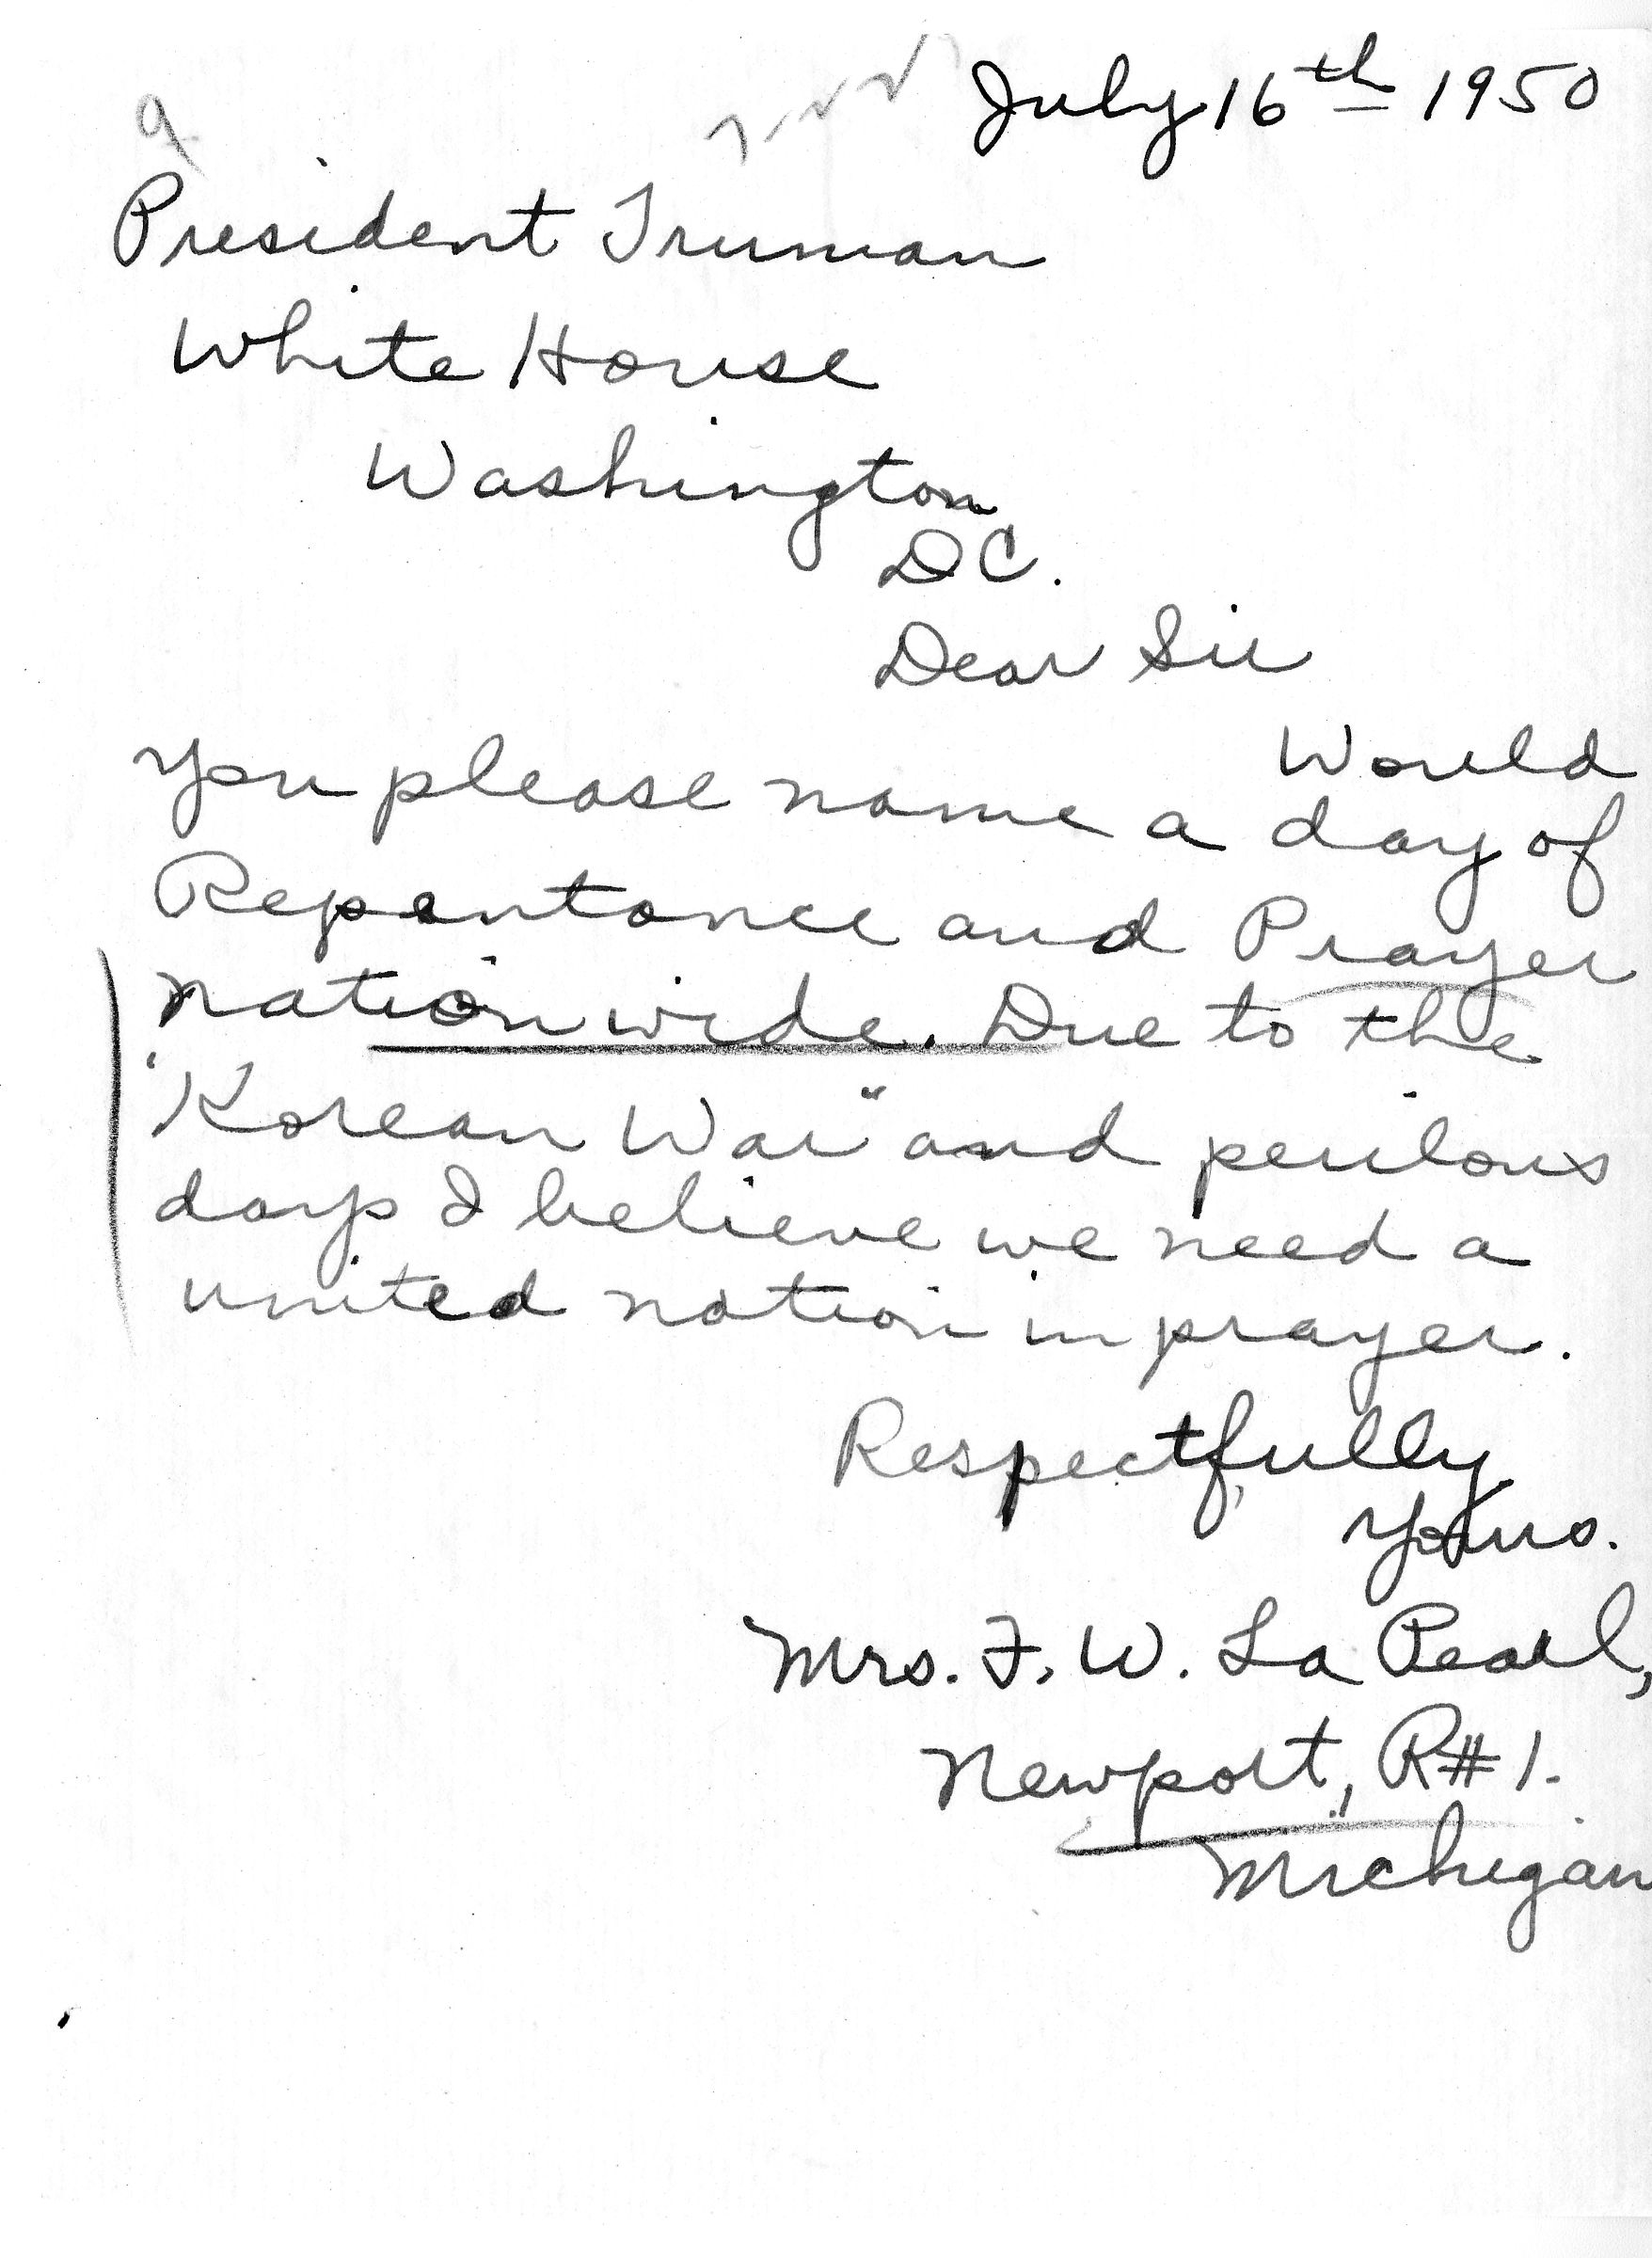 July 16th 1950
President Truman
White House
Washington
DC.
Dear Sir
Would
you please name a day of
Repentance and Prayer
nation wide. Due to the
"Korean War" and perilous
days I believe we need a
united nation in prayer.
Respectfully
Yours.
Mrs. F. W. La Pearl,
Newport, R#1.
Michigan